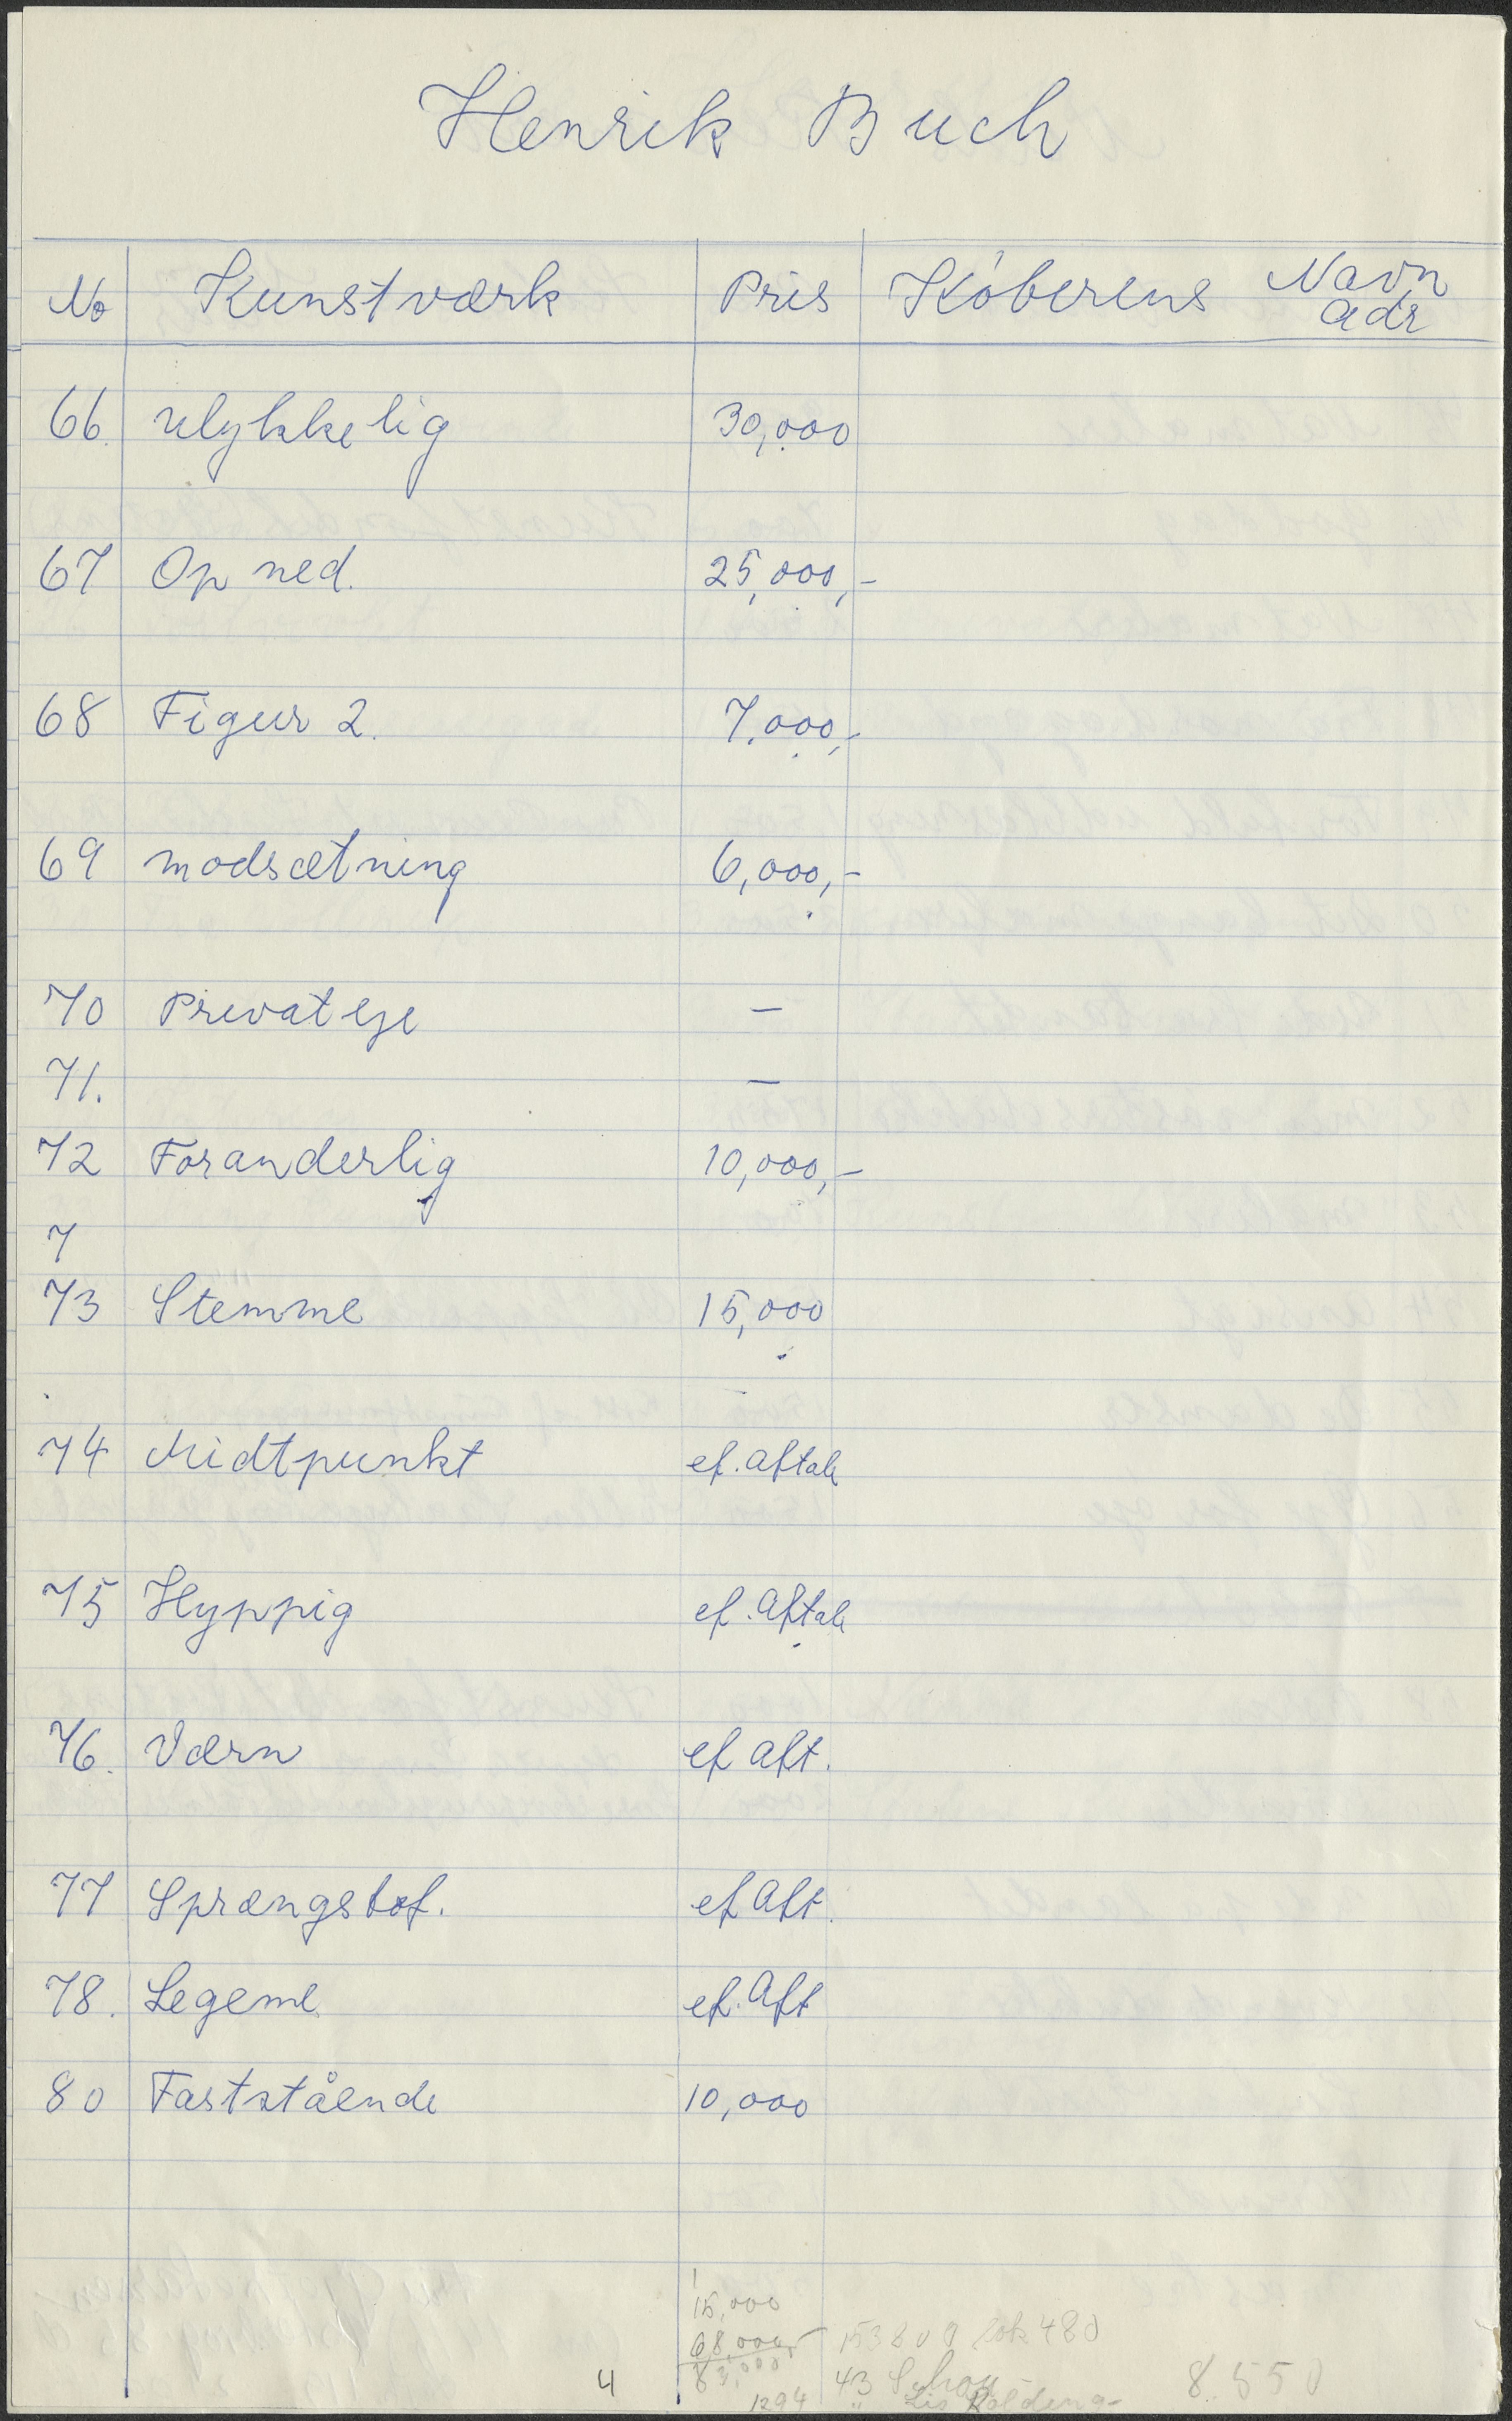 Henrik Buch
No Kunstværk Pris Køberens Navn
adr
66. ulykkelig 30,000
67 Op ned. 25,000,-
68 Figur 2. 7.000,-
69 modsætning 6,000,-
70 Privateje —
71. —
72 Foranderlig 10,000,-
7
73 Stemme 15,000
74 Midtpunkt ef. aftale
75 Hyppig ef. Aftale
76. Værn ef aft.
77 Sprængstof. ef Aft.
78. Legeme ef. Aft
80 Faststående 10,000
15,000
68,000 153800 lok 480
83,000 43 Schou 8.550
4 1294 " Lis